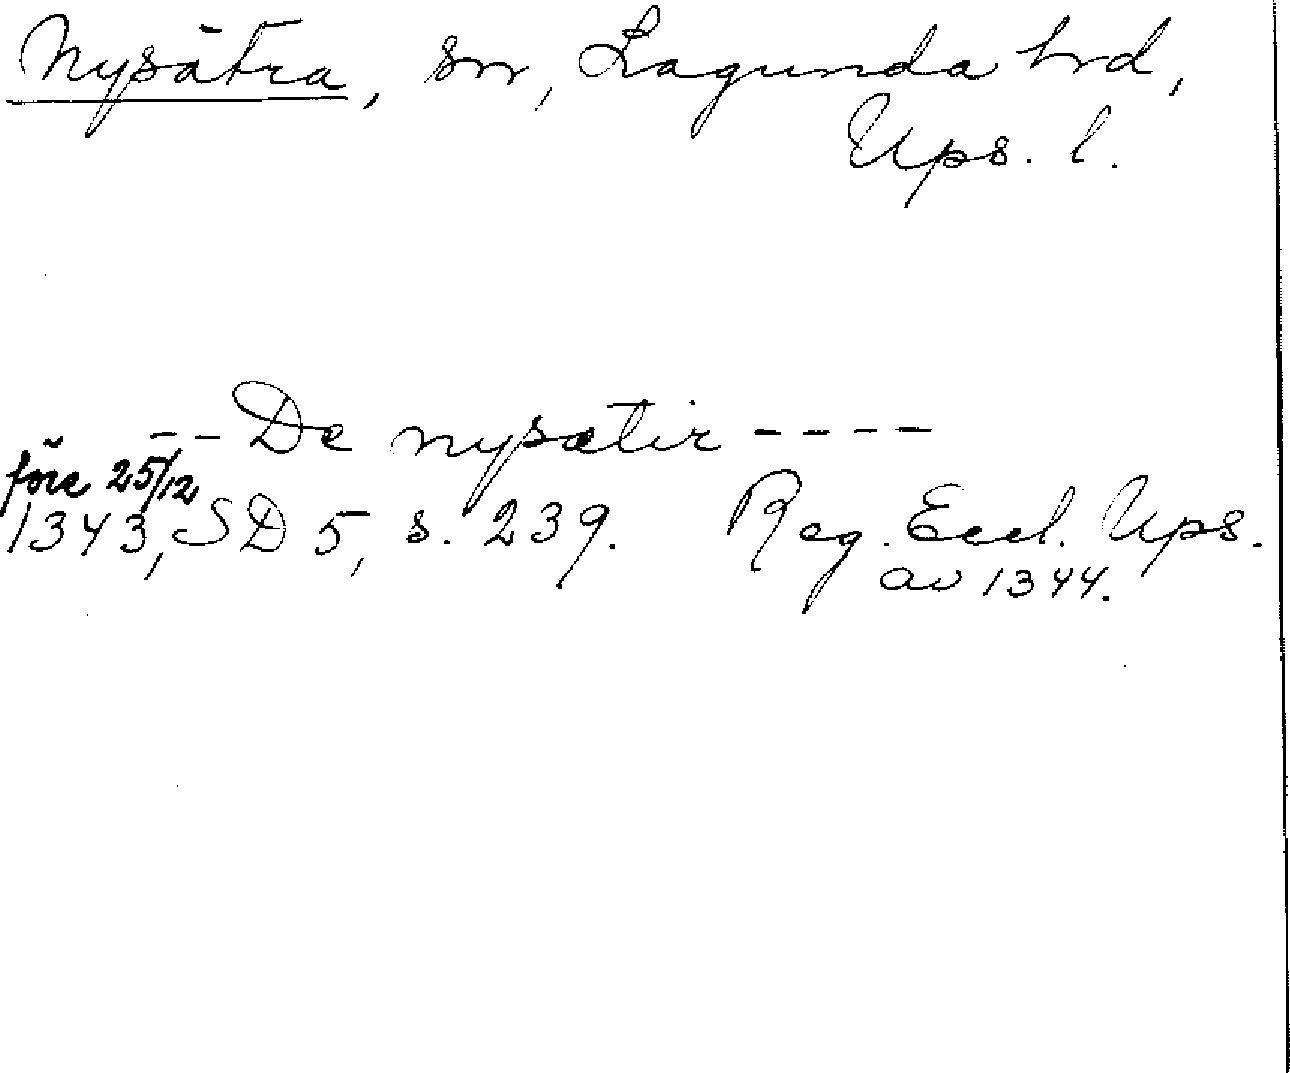 Nysätra, sn, Lagunda hrd,
Ups. l.
-- De nysætir ----
före 25/12
1343, SD 5, s. 239. Reg. Eccl. Ups.
av 1344.